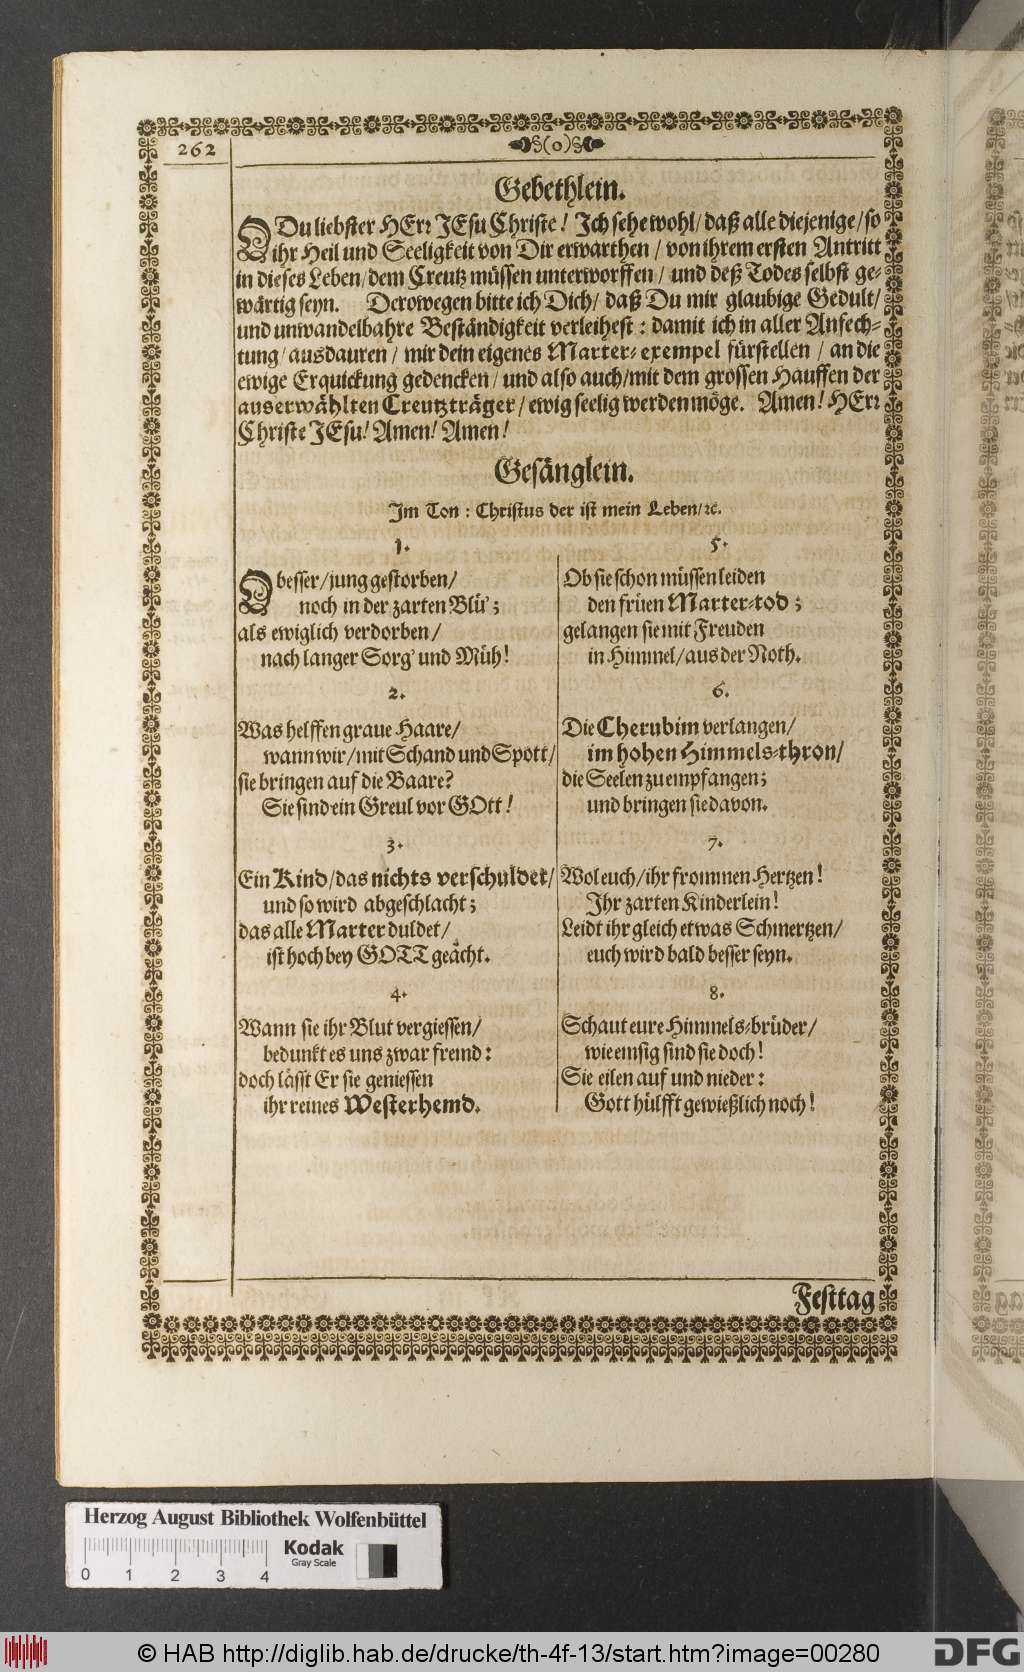 262
(o)
Gebethlein.
O Du liebster HErr JEsu Christe! Ich sehe wohl/ daß alle diejenige/ so
ihr Heil und Seeligkeit von Dir erwarthen/ von ihrem ersten Antritt
in dieses Leben/ dem Creutz müssen unterworffen/ und deß Todes selbst ge-
wärtig seyn. Derowegen bitte ich Dich/ daß Du mir glaubige Gedult/
und unwandelbahre Beständigkeit verleihest: damit ich in aller Anfech-
tung/ ausdauren/ mir dein eigenes Marter-exempel fürstellen/ an die
ewige Erquickung gedencken/ und also auch/ mit dem grossen Hauffen der
auserwählten Creutzträger/ ewig seelig werden möge. Amen! HErr
Christe JEsu! Amen! Amen!
Gesänglein.
Im Ton: Christus der ist mein Leben/ ꝛc.
1.
O besser/ jung gestorben/
noch in der zarten Blü';
als ewiglich verdorben/
nach langer Sorg' und Müh!
2.
Was helffen graue Haare/
wann wir/ mit Schand und Spott/
sie bringen auf die Baare?
Sie sind ein Greul vor GOtt!
3.
Ein Kind/ das nichts verschuldet/
und so wird abgeschlacht;
das alle Marter duldet/
ist hoch bey GOTT geächt.
4.
Wann sie ihr Blut vergiessen/
bedunkt es uns zwar fremd:
doch lässt Er sie geniessen
ihr reines Westerhemd.
5.
Ob sie schon müssen leiden
den früen Marter-tod;
gelangen sie mit Freuden
in Himmel/ aus der Noth.
6.
Die Cherubim verlangen/
im hohen Himmels-thron/
die Seelen zu empfangen;
und bringen sie davon.
7.
Wol euch/ ihr frommen Hertzen!
Ihr zarten Kinderlein!
Leidt ihr gleich etwas Schmertzen/
euch wird bald besser seyn.
8.
Schaut eure Himmels-brüder/
wie emsig sind sie doch!
Sie eilen auf und nieder:
Gott hülfft gewießlich noch!
Festtag
Herzog August Bibliothek Wolfenbüttel
Kodak
Gray Scale
0 1 2 3 4
© HAB http://diglib.hab.de/drucke/th-4f-13/start.htm?image=00280
DFG